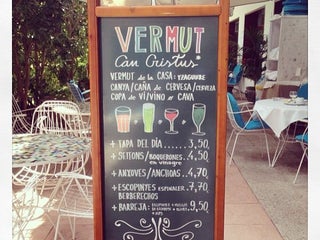 VERMUT
Can Cristus
VERMUT de la CASA: YZAGUIRRE
CANYA/CAÑA de CERVESA/CERVEZA
COPA de VI/VINO or CAVA
+ TAPA DEL DÍA 3,50
+ SEITONS/BOQUERONES en vinagre 4,50
+ ANXOVES/ANCHOAS 4,70
+ ESCOPINYES ESPINALER 7,70
BERBERECHOS
+ BARREJA: 9,50